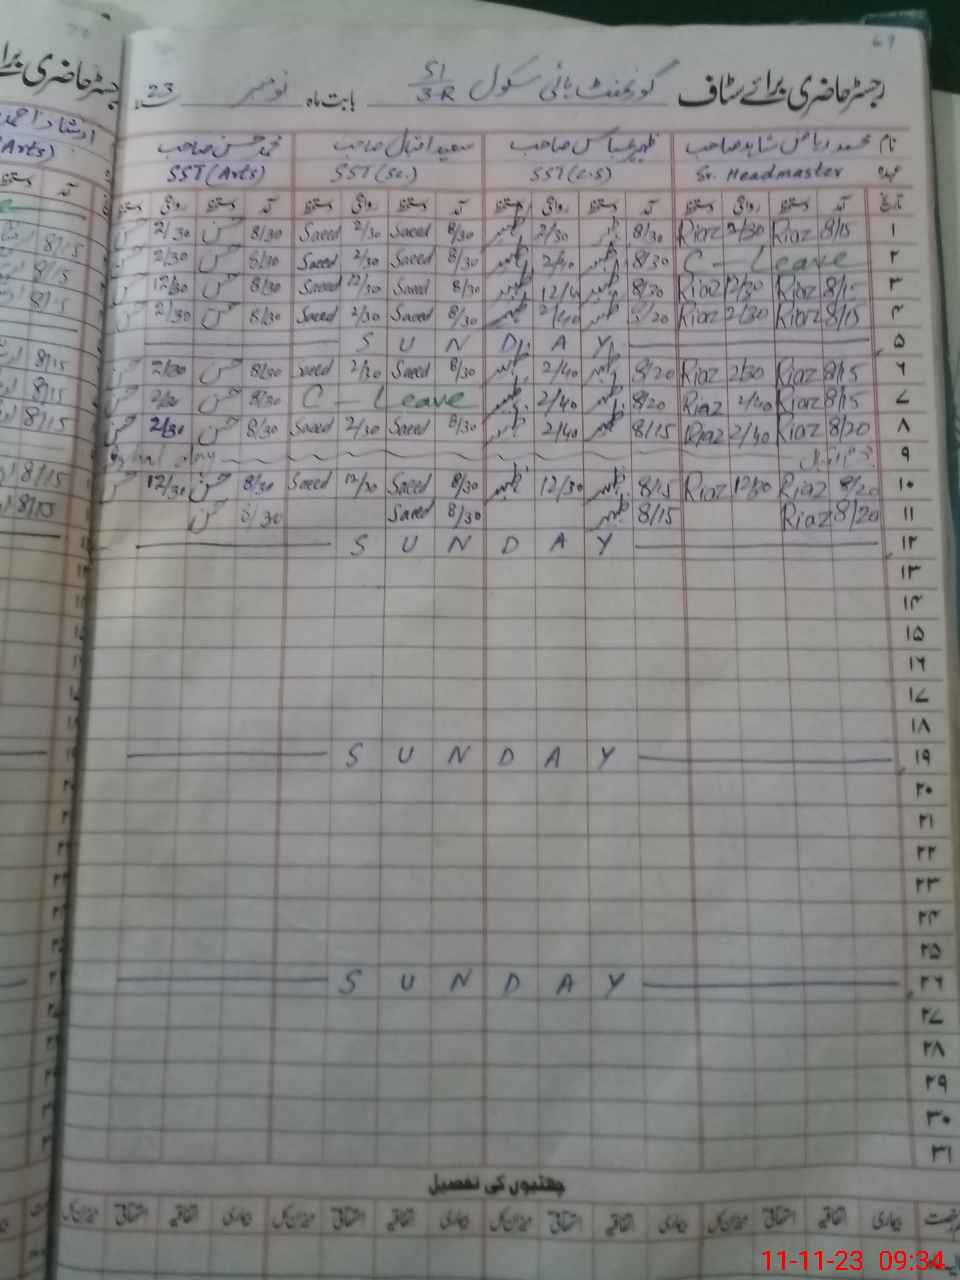 69
رجسٹر حاضری برائے سٹاف گورنمنٹ ہائی سکول 51/3-R بابت ماہ نومبر 23
نام محمد ریاض شاہد صاحب ظہیر عباس صاحب سعید اقبال صاحب محمد حسن صاحب
عہدہ Sr. Headmaster SST (C.S) SST (Sc.) SST (Arts)
تاریخ آمد دستخط روانگی دستخط آمد دستخط روانگی دستخط آمد دستخط روانگی دستخط آمد دستخط روانگی دستخط
۱ 8/15 Riaz 2/30 Riaz 8/30 ظہیر 2/30 ظہیر 8/30 Saeed 2/30 Saeed 8/30 حسن 2/30 حسن
۲ C - Leave 8/30 ظہیر 2/40 ظہیر 8/30 Saeed 2/30 Saeed 8/30 حسن 2/30 حسن
۳ 8/15 Riaz 12/30 Riaz 8/20 ظہیر 12/40 ظہیر 8/30 Saeed 12/30 Saeed 8/30 حسن 12/30 حسن
۴ 8/15 Riaz 2/30 Riaz 8/20 ظہیر 2/40 ظہیر 8/30 Saeed 2/30 Saeed 8/30 حسن 2/30 حسن
۵ S U N D A Y
۶ 8/15 Riaz 2/30 Riaz 8/20 ظہیر 2/40 ظہیر 8/30 Saeed 2/30 Saeed 8/30 حسن 2/30 حسن
۷ 8/15 Riaz 2/40 Riaz 8/20 ظہیر 2/40 ظہیر C - Leave 8/30 حسن 2/30 حسن
۸ 8/20 Riaz 2/40 Riaz 8/15 ظہیر 2/40 ظہیر 8/30 Saeed 2/30 Saeed 8/30 حسن 2/30 حسن
۹ Iqbal day
۱۰ 8/20 Riaz 12/30 Riaz 8/15 ظہیر 12/30 ظہیر 8/30 Saeed 12/30 Saeed 8/30 حسن 12/30 حسن
۱۱ 8/20 Riaz 8/15 ظہیر 8/30 Saeed 8/30 حسن
۱۲ S U N D A Y
۱۳
۱۴
۱۵
۱۶
۱۷
۱۸
۱۹ S U N D A Y
۲۰
۲۱
۲۲
۲۳
۲۴
۲۵
۲۶ S U N D A Y
۲۷
۲۸
۲۹
۳۰
۳۱
چھٹیوں کی تفصیل
بیماری اتفاقیہ استحقاقی میزان کل بیماری اتفاقیہ استحقاقی میزان کل بیماری اتفاقیہ استحقاقی میزان کل بیماری اتفاقیہ استحقاقی میزان کل
11-11-23 09:34